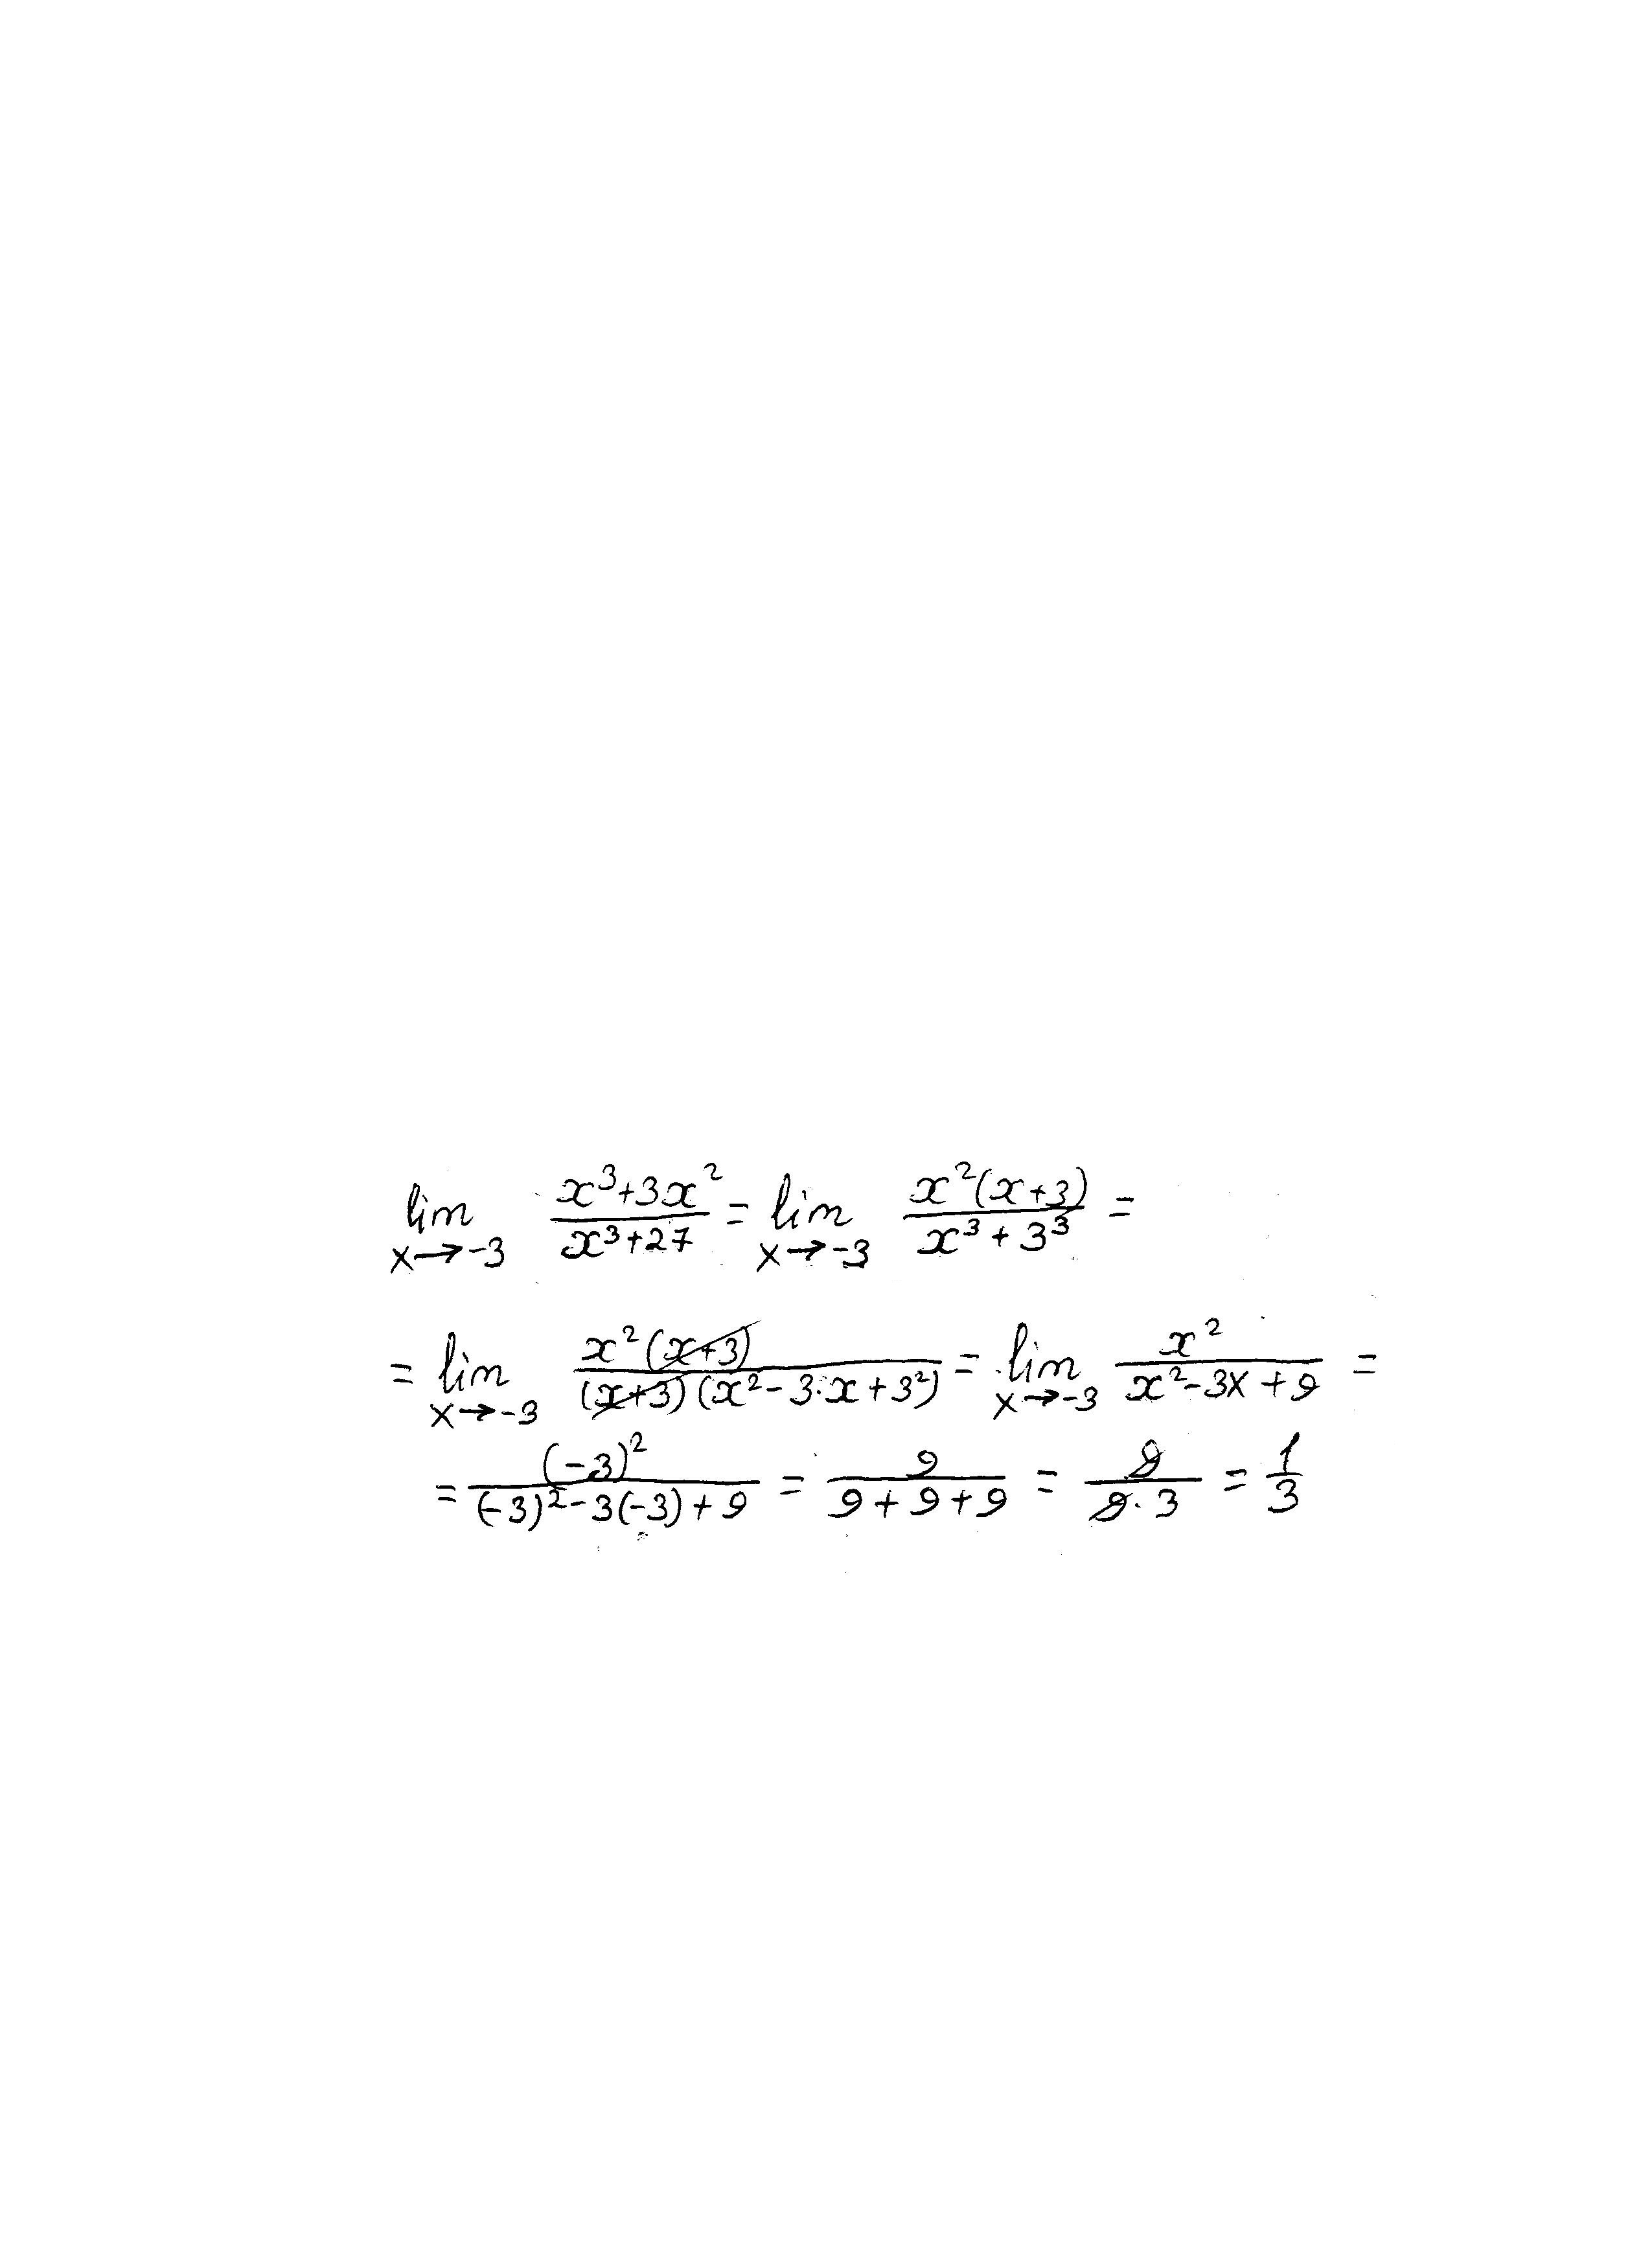 lim x→-3 (x³+3x²)/(x³+27) = lim x→-3 x²(x+3)/(x³+3³) =
= lim x→-3 x²(x+3)/((x+3)(x²-3·x+3²)) = lim x→-3 x²/(x²-3x+9) =
= (-3)²/((-3)²-3(-3)+9) = 9/(9+9+9) = 9/(9·3) = 1/3